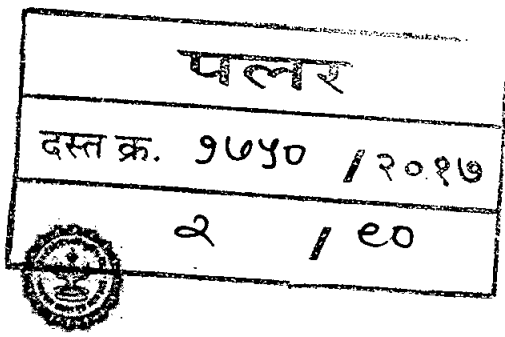 पलर
दस्त क्र. १७५० / २०१७
२ / ९०